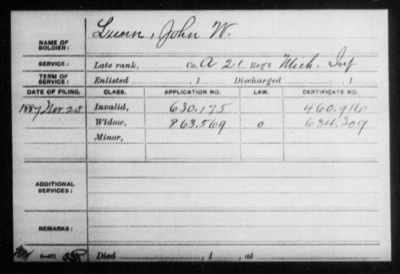 NAME OF SOLDIER: Lunn, John W.
SERVICE: Late rank, Co. A 21 Reg't Mich. Inf
TERM OF SERVICE: Enlisted , 1 Discharged , 1
DATE OF FILING. CLASS. APPLICATION NO. LAW. CERTIFICATE NO.
1887 Nov 25 Invalid, 630.175 460.910
Widow, 863.569 0 634.309
Minor,
ADDITIONAL SERVICES:
REMARKS:
Died , 1 , at